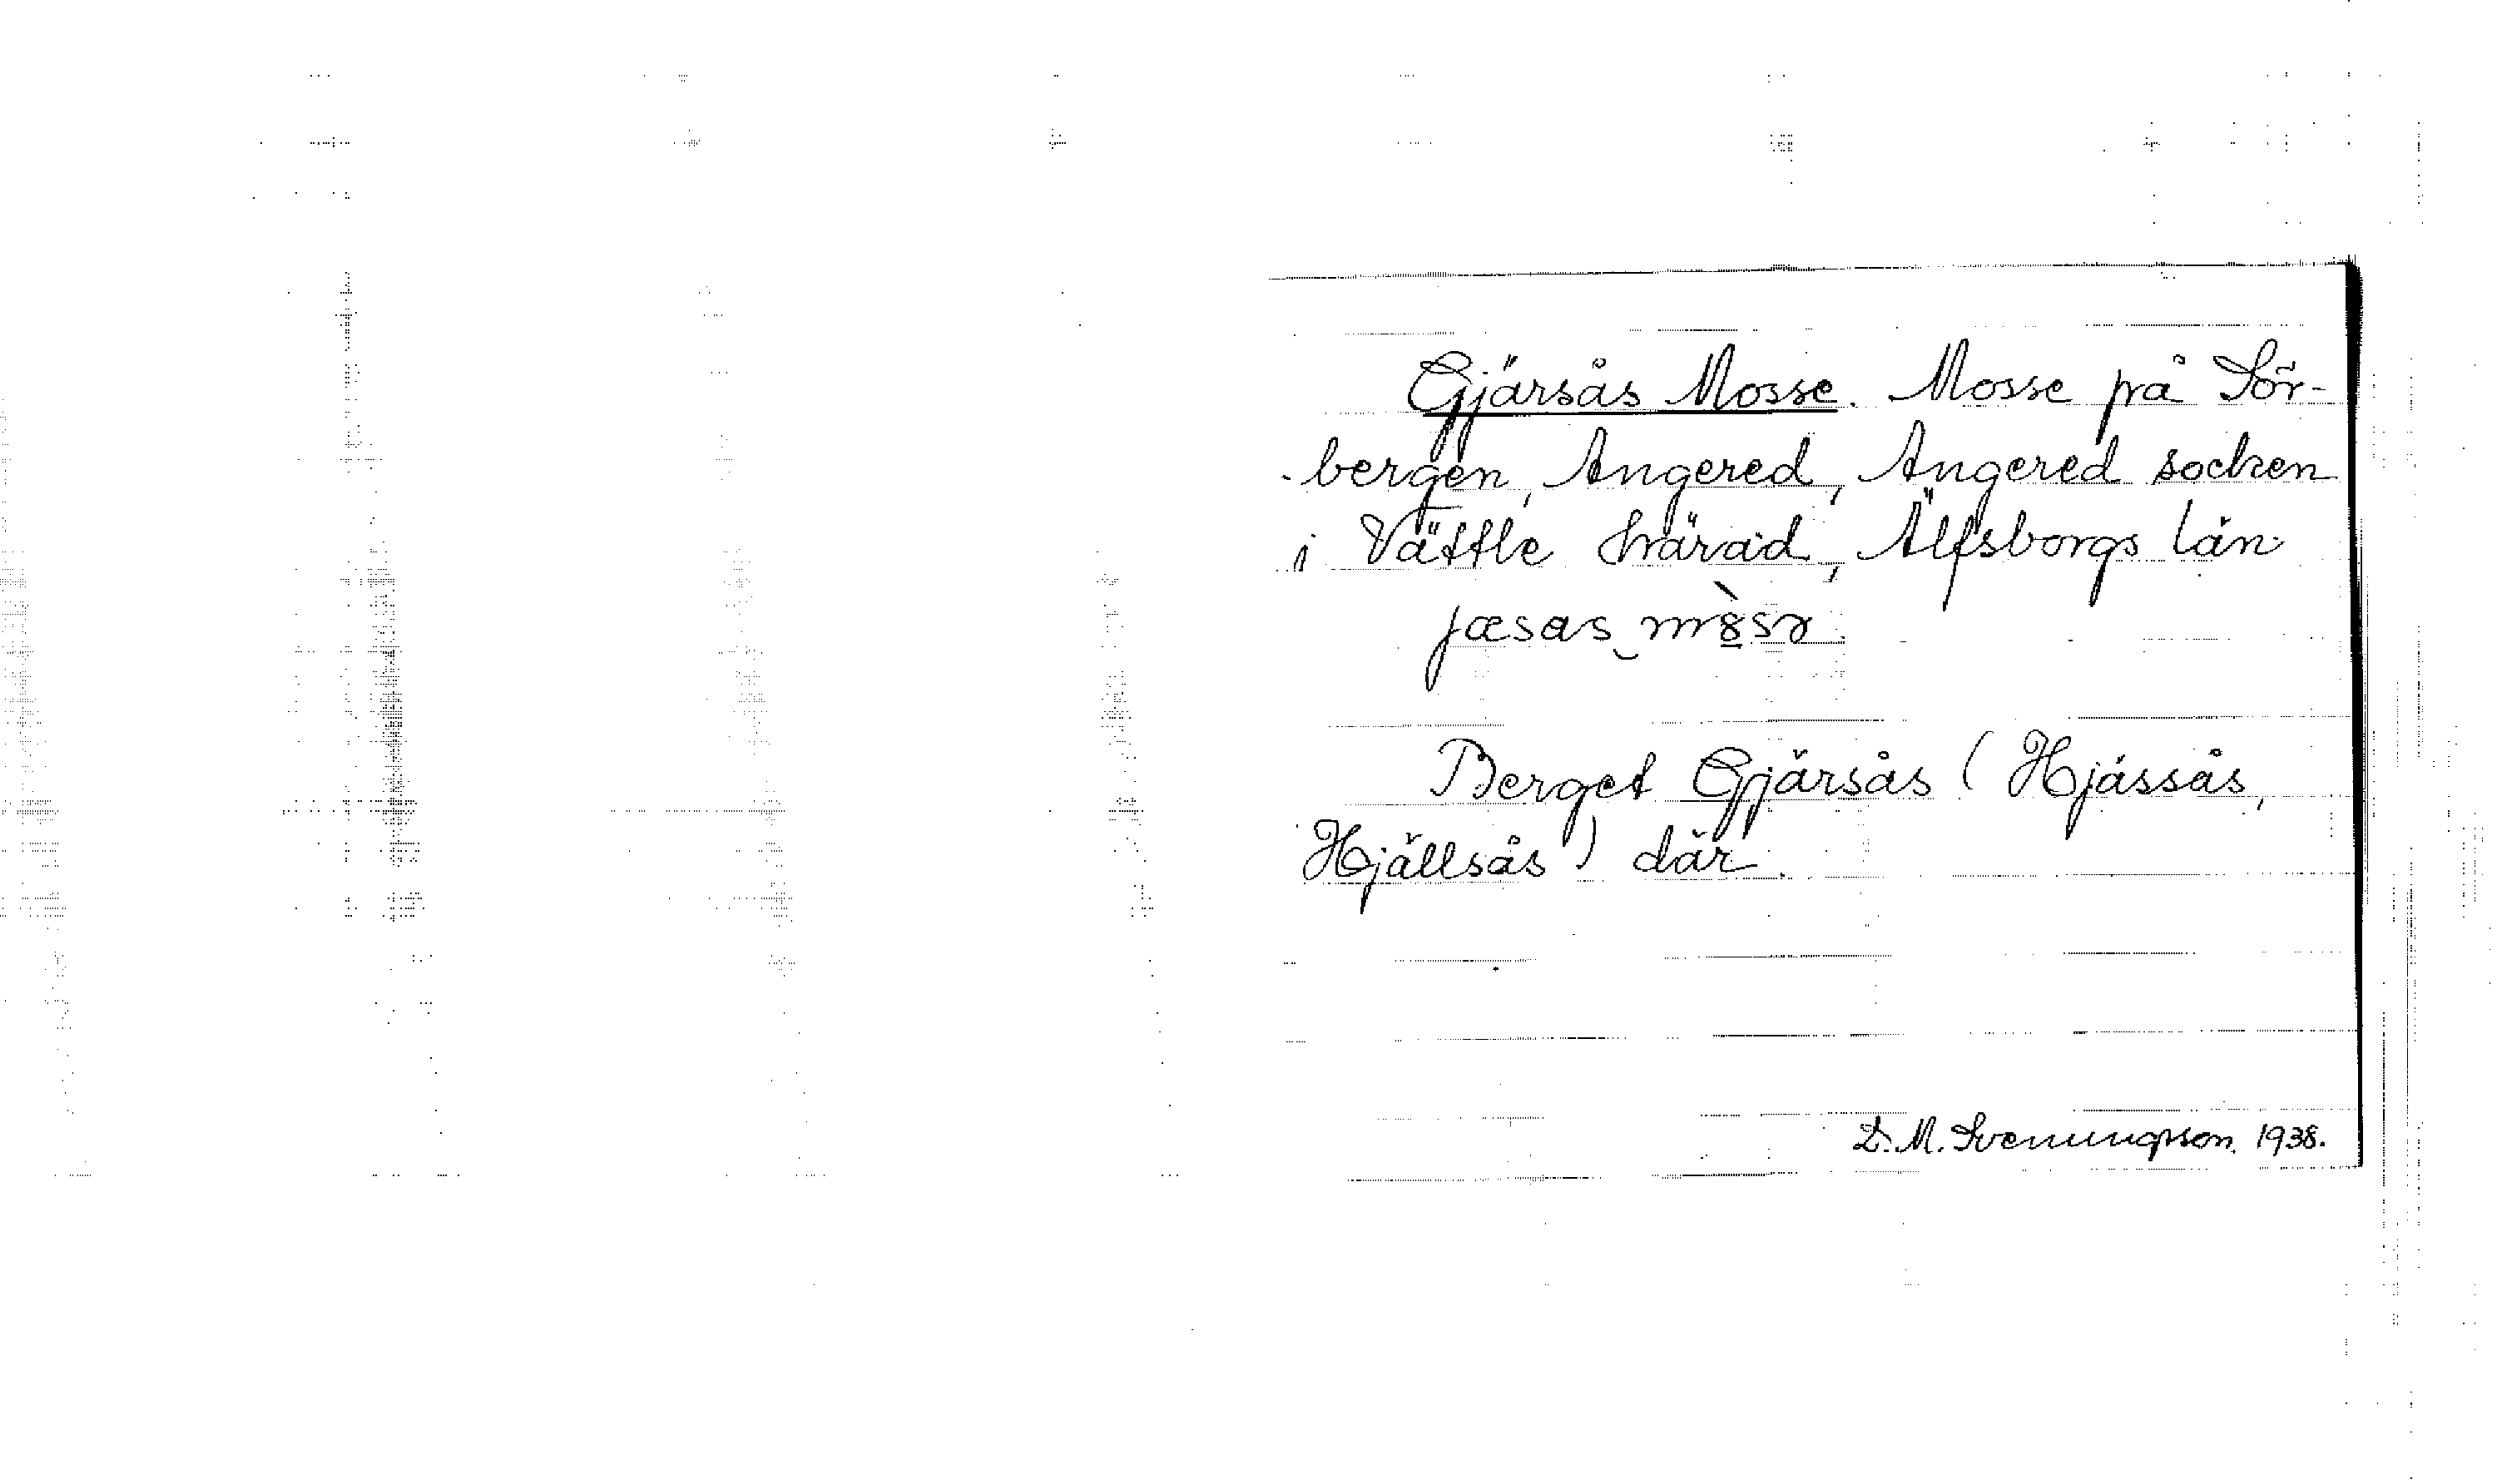 Gjärsås Mosse. Mosse på Sör-
-bergen, Angered, Angered socken
i Vättle härad, Älfsborgs län
jæsas m
Berget Gjärsås (Hjässås,
Hjällsås) där.
D. M. Svenungsson. 1938.